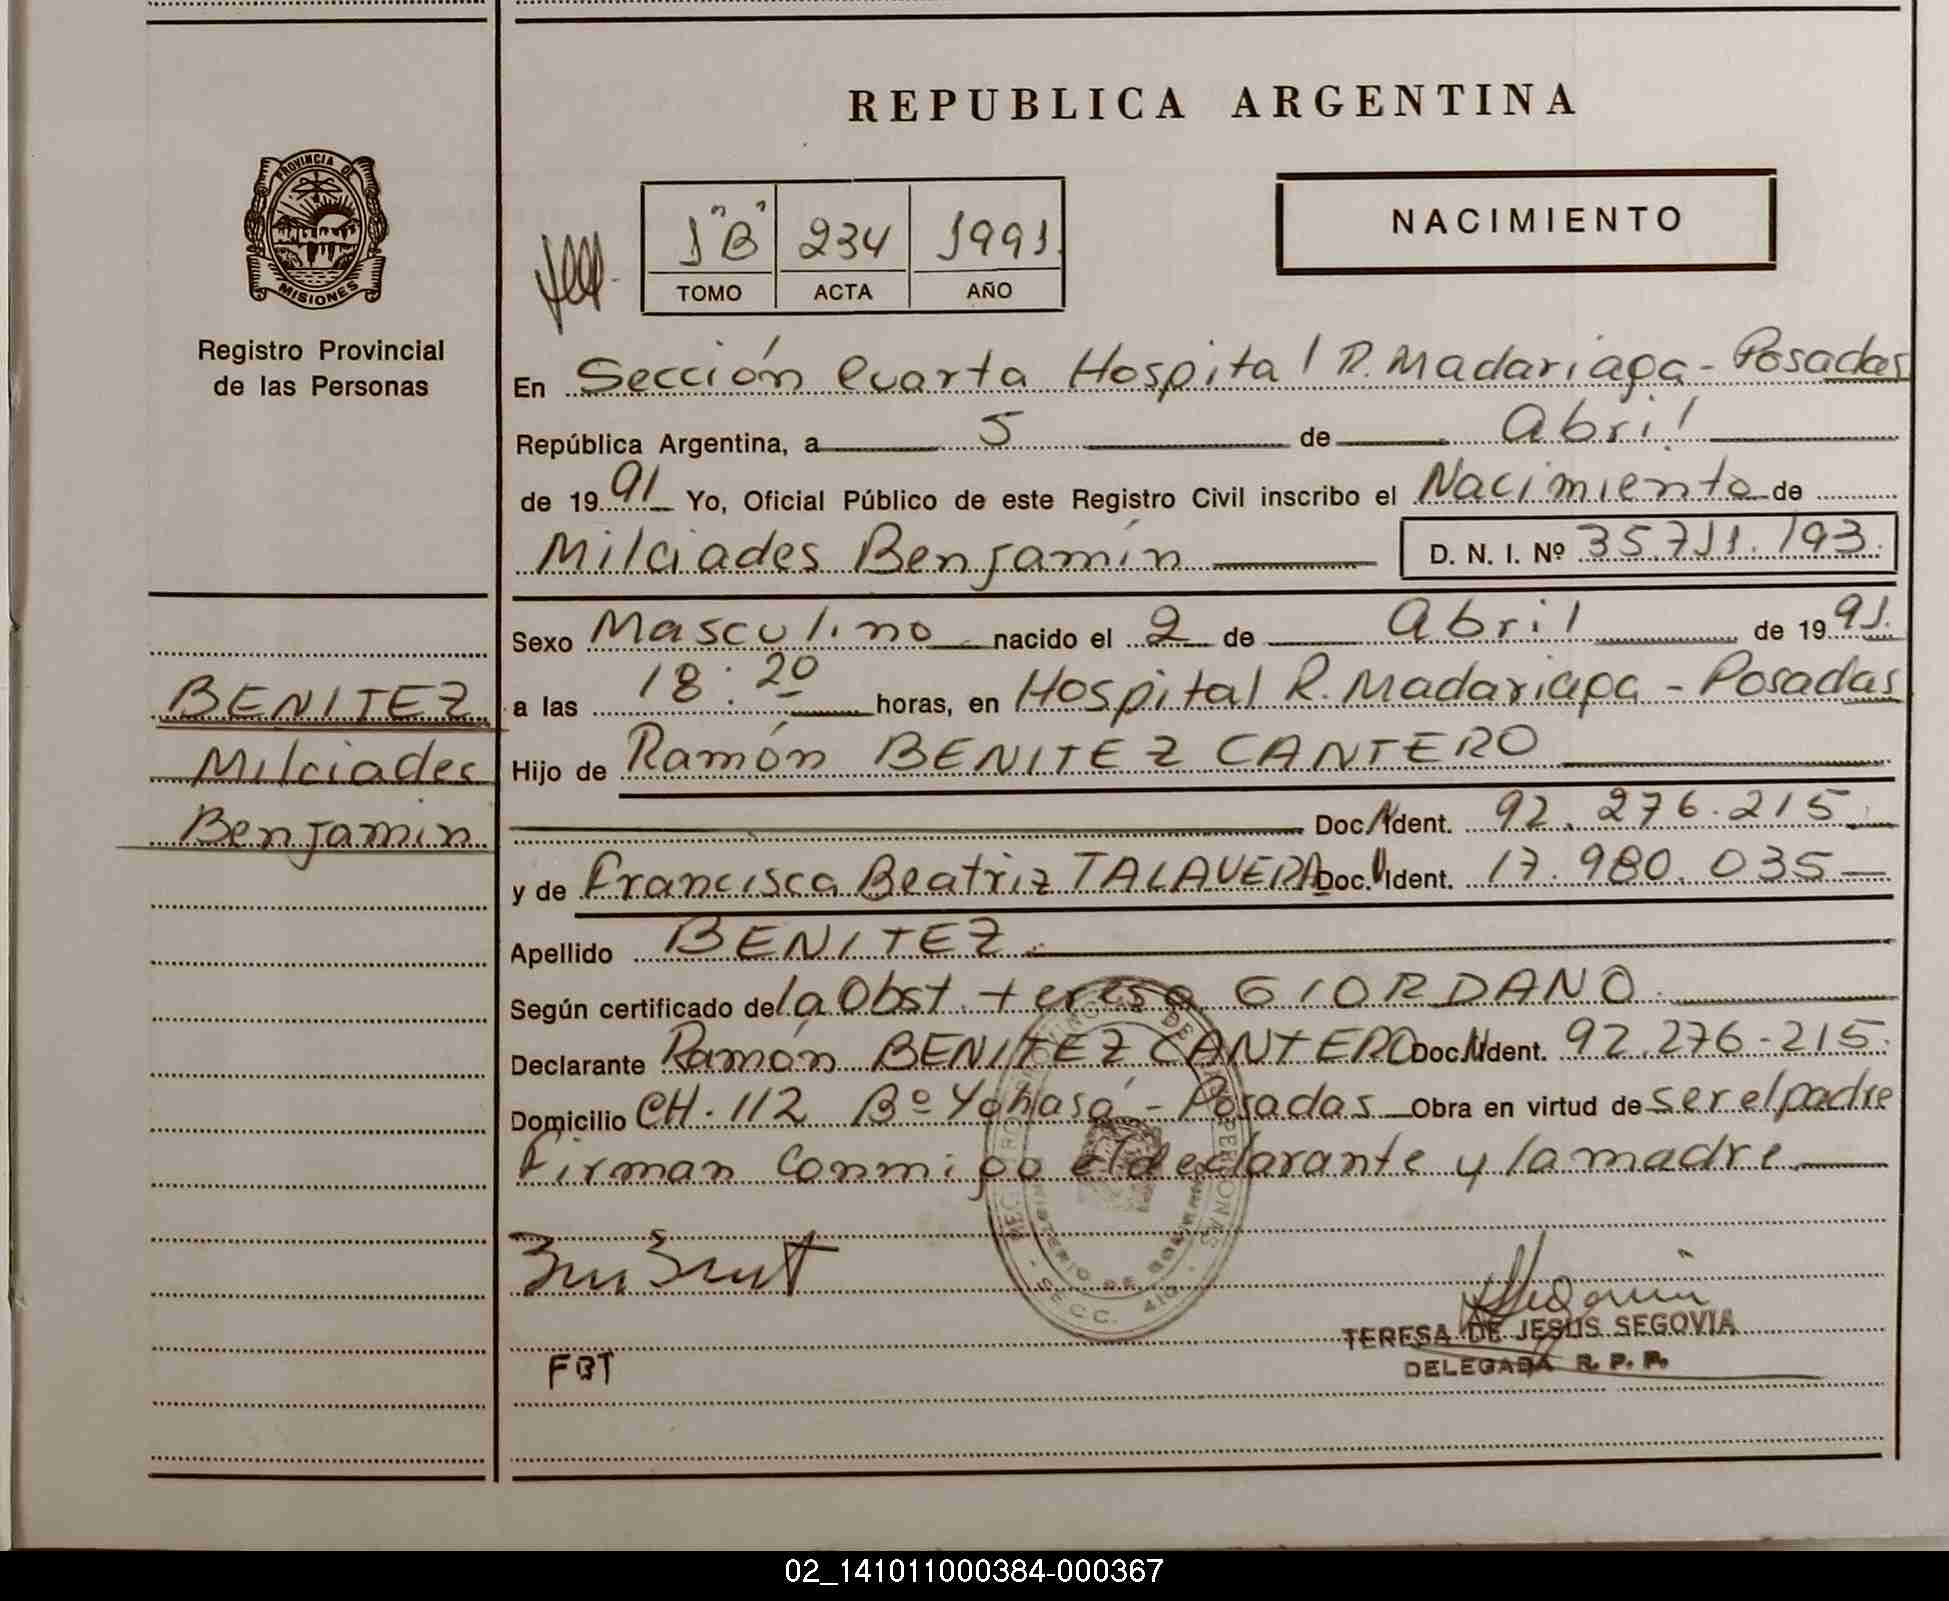 REPUBLICA ARGENTINA
PROVINCIA DE
MISIONES
Registro Provincial
de las Personas
1 "B" 234 1991.
TOMO ACTA AÑO
NACIMIENTO
En Sección Cuarta Hospital R. Madariaga - Posadas
República Argentina, a 5 de Abril
de 1991 Yo, Oficial Público de este Registro Civil inscribo el Nacimiento de
Milciades Benjamín D. N. I. Nº 35.711.193.
Sexo Masculino nacido el 2 de Abril de 1991.
BENITEZ
Milciades
Benjamin
a las 18:20 horas, en Hospital R. Madariaga - Posadas
Hijo de Ramón BENITEZ CANTERO
Doc. Ident. 92.276.215.
y de Francisca Beatriz TALAVERA Doc. Ident. 17.980.035
Apellido BENITEZ
Según certificado de la Obst. teresa GIORDANO
Declarante Ramón BENITEZ CANTERO Doc. Ident. 92.276-215.
Domicilio CH. 112 Bº Yohasá - Posadas Obra en virtud de ser el padre
Firman Conmigo el declarante y la madre
SECC. 4
TERESA DE JESUS SEGOVIA
DELEGADA R. P. P.
FBT
02_141011000384-000367